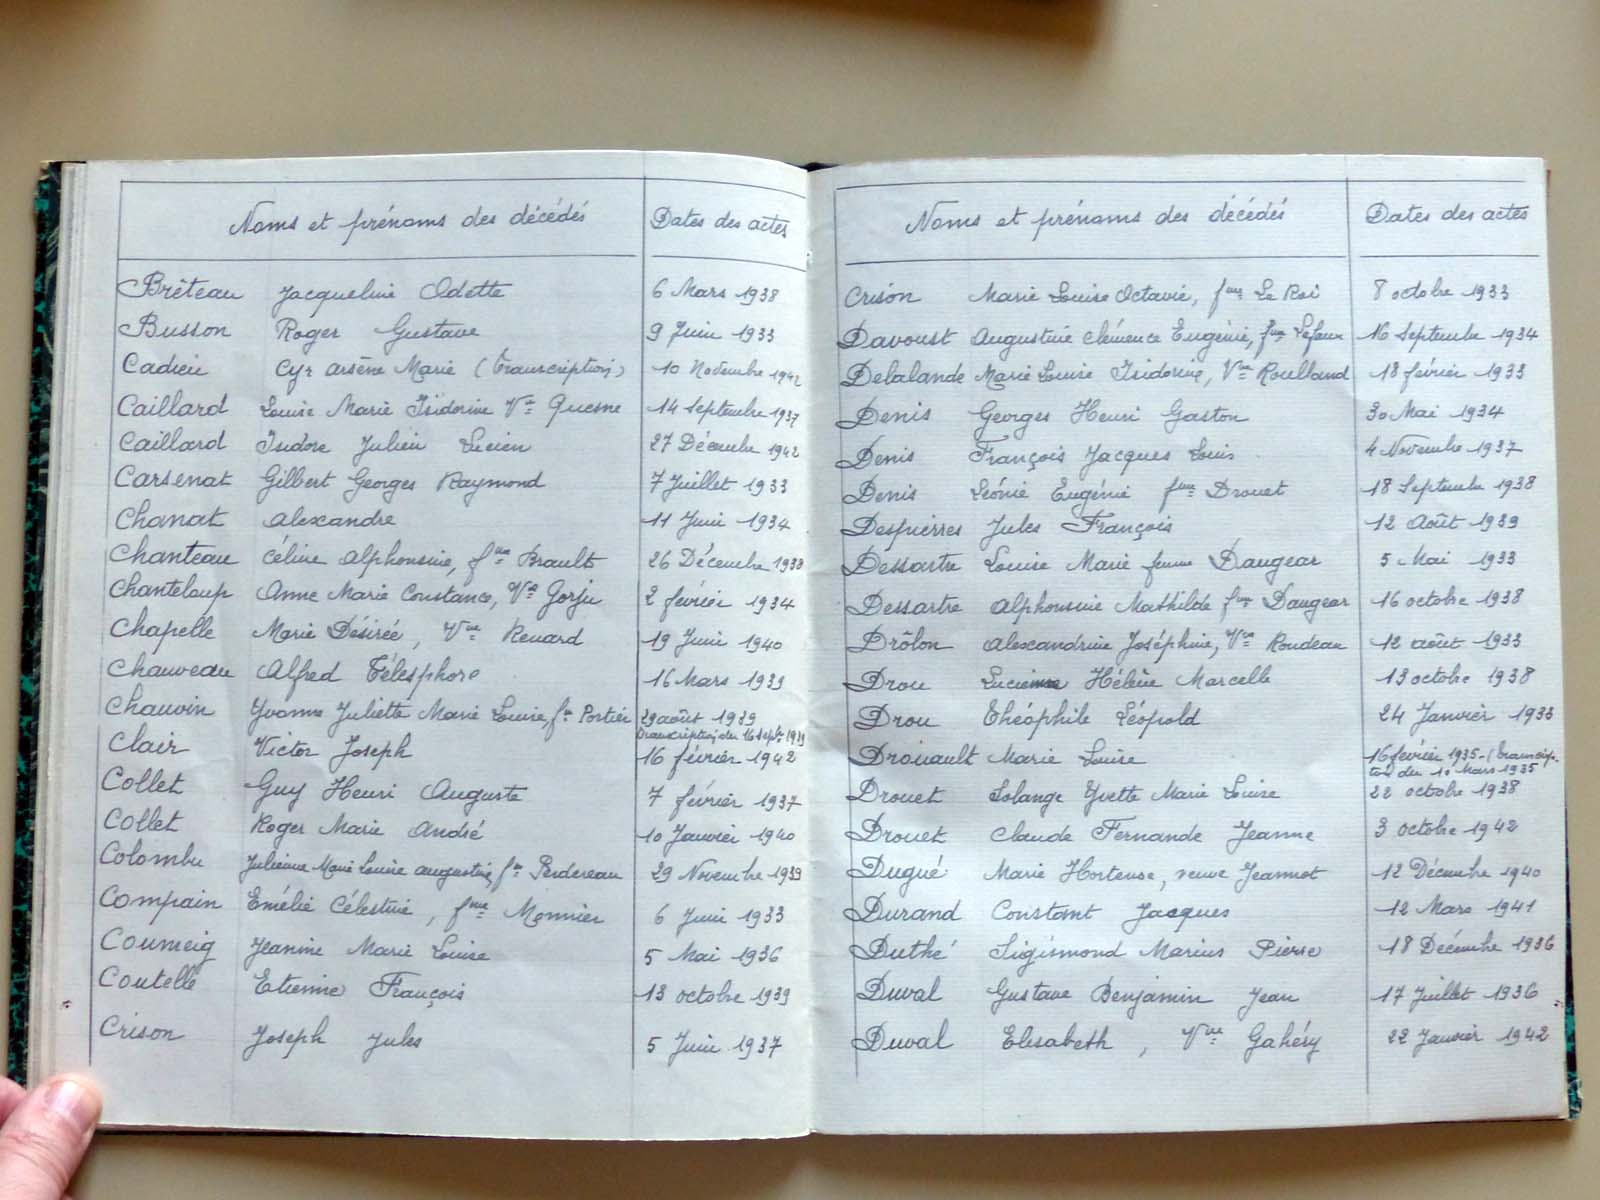 Noms et prénoms des décédés Dates des actes
Brêteau Jacqueline Odette 6 Mars 1938
Busson Roger Gustave 9 Juin 1933
Cadieu Cyr arsène Marie (Transcription) 10 Novembre 1942
Caillard Louise Marie Isidorine Vve Quesne 14 Septembre 1937
Caillard Isidore Julien Lucien 27 Décembre 1942
Carsenat Gilbert Georges Raymond 7 Juillet 1933
Chanat alexandre 11 Juin 1934
Chanteau Céline alphonsine, fme Brault 26 Décembre 1938
Chanteloup Anne Marie Constance, Vve Gorju 2 février 1934
Chapelle Marie Désirée, Vve Renard 19 Juin 1940
Chauveau Alfred Télesphore 16 Mars 1939
Chauvin Yvonne Juliette Marie Louise, fe Portier 29 août 1939
transcription du 16 septbre 1939
Clair Victor Joseph 16 février 1942
Collet Guy Henri Auguste 7 février 1937
Collet Roger Marie André 10 Janvier 1940
Colombu Julienne Marie Louise augustine, fe Perdereau 29 Novembre 1939
Compain Emélie Célestine, fme Monnier 6 Juin 1933
Coumeig Jeanine Marie Louise 5 Mai 1936
Coutelle Etienne François 13 octobre 1939
Crison Joseph Jules 5 Juin 1937
Noms et prénoms des décédés Dates des actes
Crison Marie Louise Octavie, fme Le Roi 8 octobre 1933
Davoust Augustine Clémence Eugénie, fme Lefaux 16 Septembre 1934
Delalande Marie Louise Isidorine, Vve Roulland 18 février 1933
Denis Georges Henri Gaston 30 Mai 1934
Denis François Jacques Louis 4 Novembre 1937
Denis Léonie Eugénie fme Drouet 18 Septembre 1938
Despierres Jules François 12 Août 1939
Dessartre Louise Marie femme Daugear 5 Mai 1933
Dessartre Alphonsine Mathilde fme Daugear 16 octobre 1938
Drôlon Alexandrine Joséphine, Vve Rondeau 12 août 1933
Drou Lucienne Hélène Marcelle 13 octobre 1938
Drou Théophile Léopold 24 Janvier 1933
Drouault Marie Louise 16 février 1935 - (Transcrip-
tion du 10 Mars 1935
Drouet Solange Yvette Marie Louise 22 octobre 1938
Drouet Claude Fernande Jeanne 3 octobre 1942
Dugué Marie Hortense, veuve Jeannot 12 Décembre 1940
Durand Constant Jacques 12 Mars 1941
Duthé Sigismond Marius Pierre 18 Décembre 1936
Duval Gustave Benjamin Jean 17 Juillet 1936
Duval Elisabeth, Vve Gahéry 22 Janvier 1942